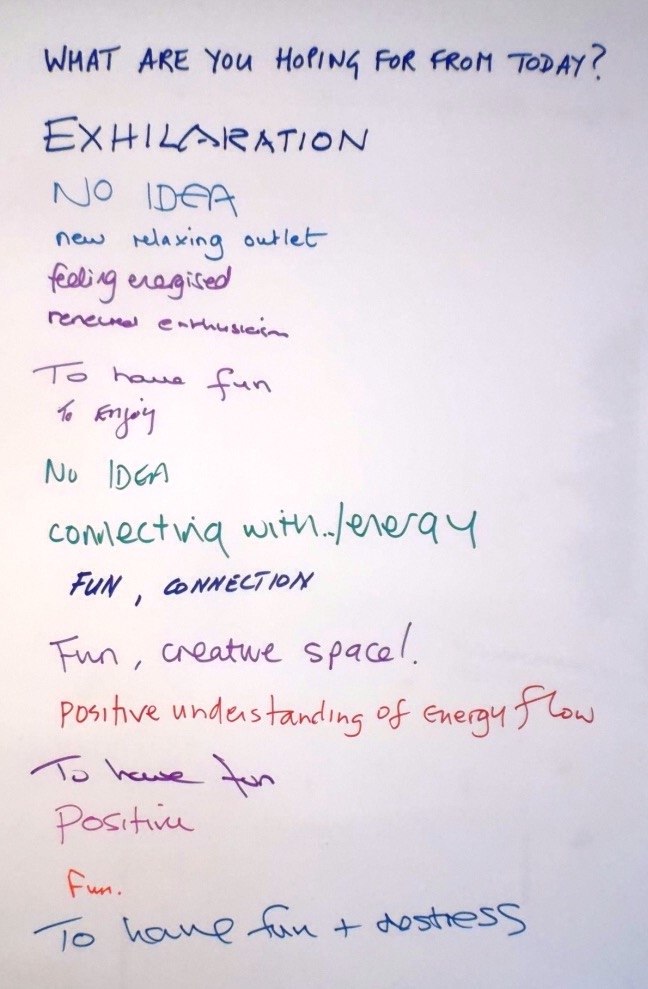 WHAT ARE YOU HOPING FOR FROM TODAY?
EXHILARATION
NO IDEA
new relaxing outlet
feeling energised
renewed enthusiasm
To have fun
To Enjoy
No IDEA
connecting with../energy
FUN, CONNECTION
Fun, creative space!.
Positive understanding of Energy flow
To have fun
Positive
Fun.
To have fun + destress